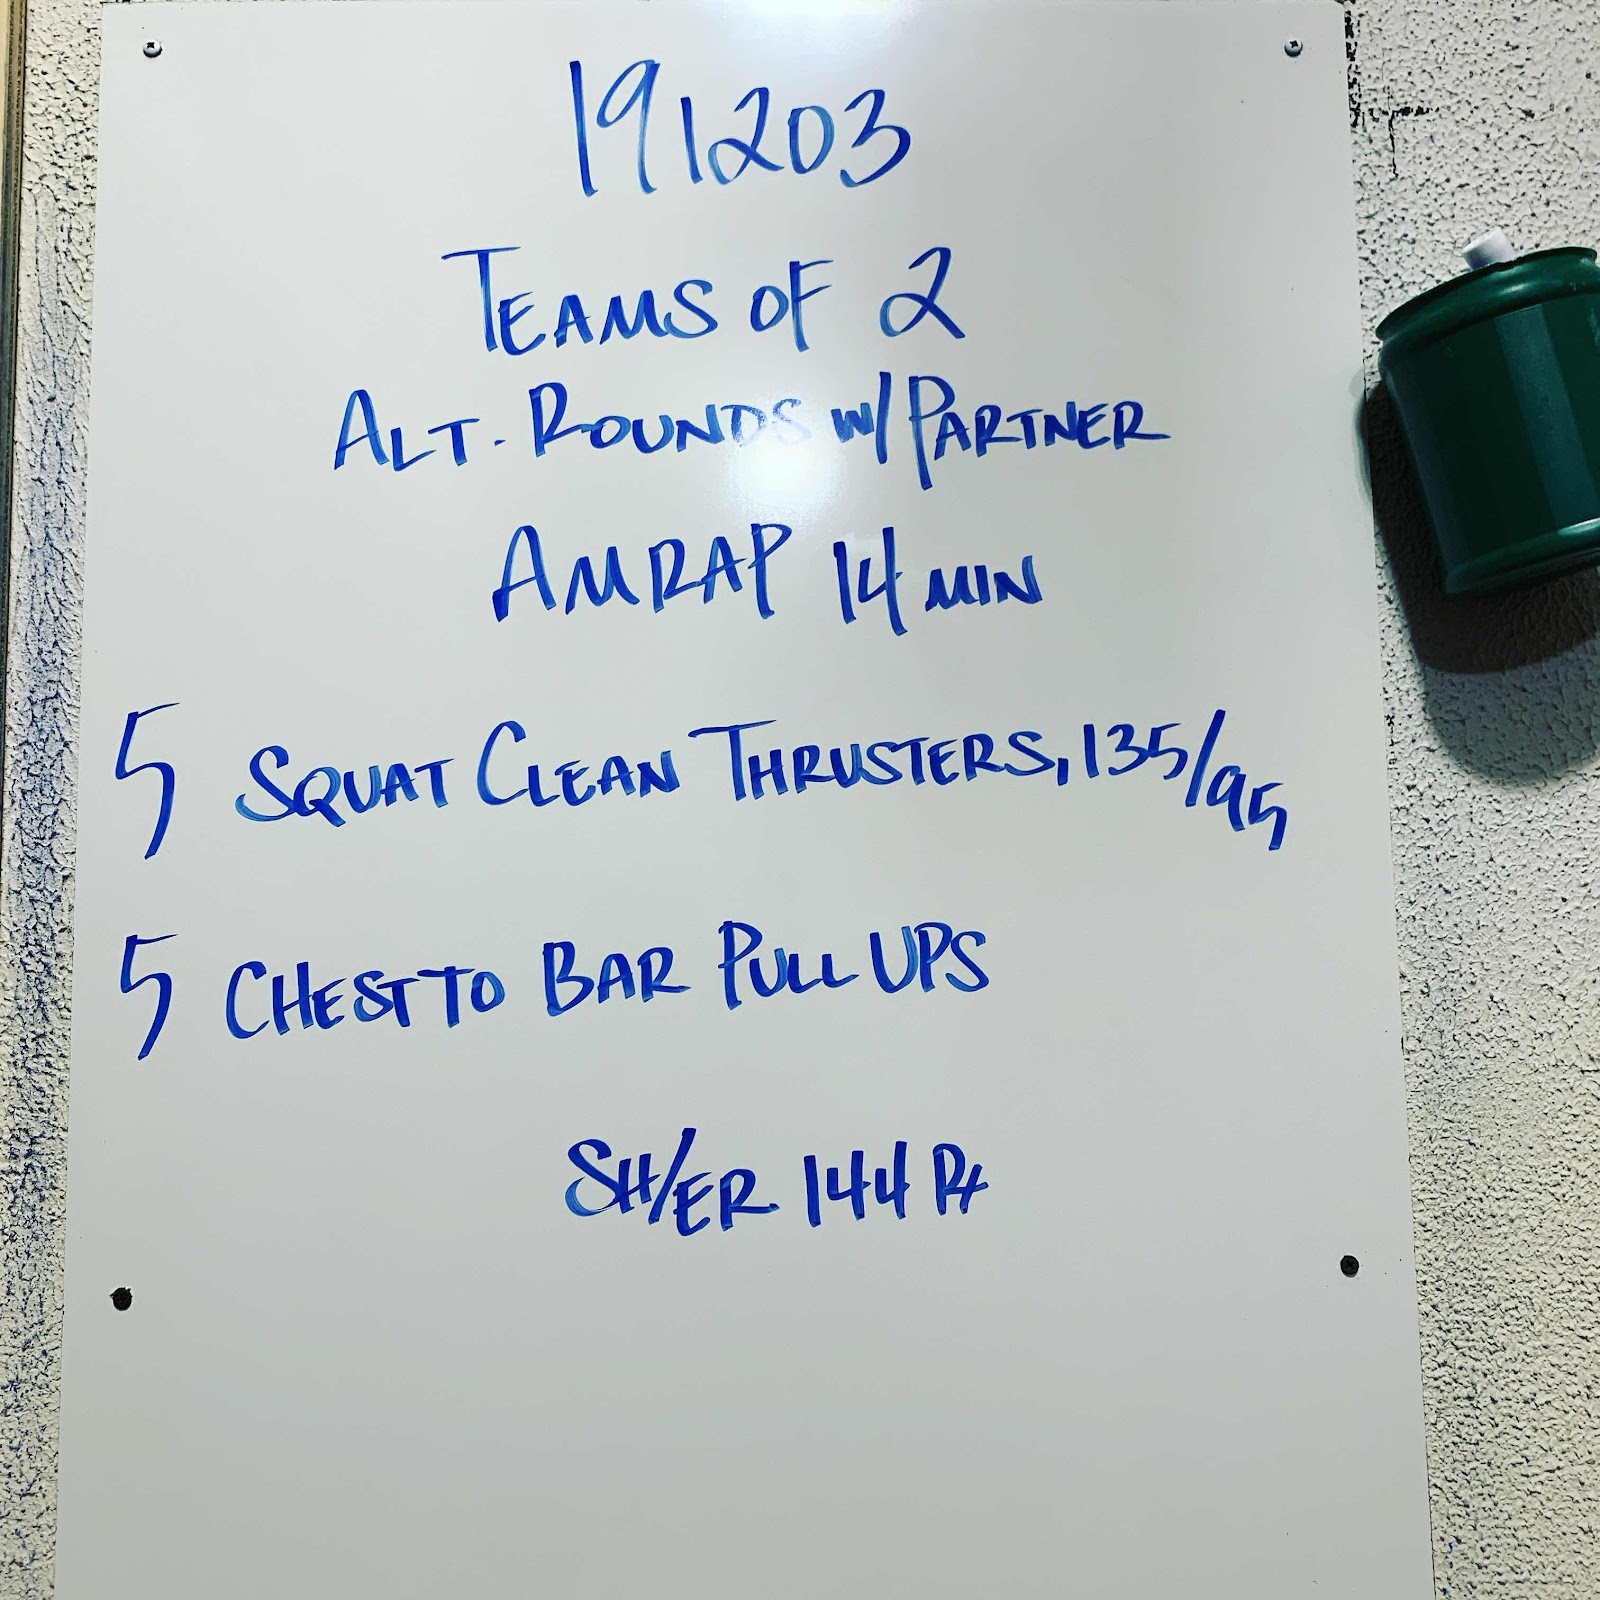 191203
TEAMS OF 2
ALT. ROUNDS W/ PARTNER
AMRAP 14 MIN
5 SQUAT CLEAN THRUSTERS, 135/95
5 CHEST TO BAR PULL UPS
SH/ER 144 Rx